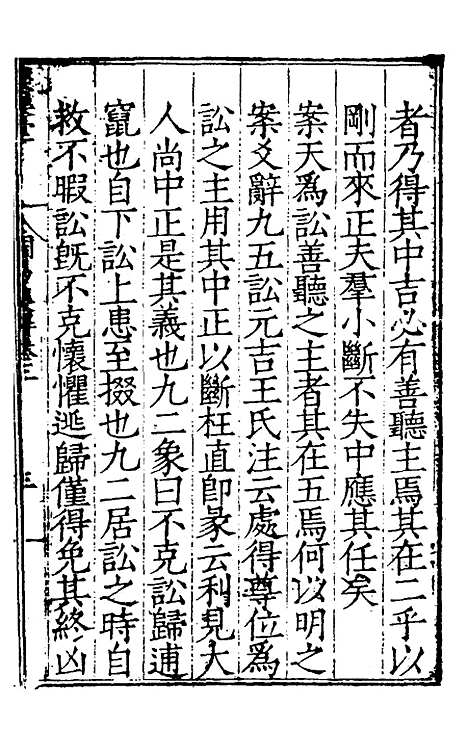 者乃得其中吉必有善聽主焉其在二乎以
剛而來正夫羣小斷不失中應其任矣
案天爲訟善聽之主者其在五焉何以明之
案爻辭九五訟元吉王氏注云處得尊位爲
訟之主用其中正以斷枉直即彖云利見大
人尚中正是其義也九二象曰不克訟歸逋
竄也自下訟上患至掇也九二居訟之時自
救不暇訟既不克懷懼逃歸僅得免其終凶